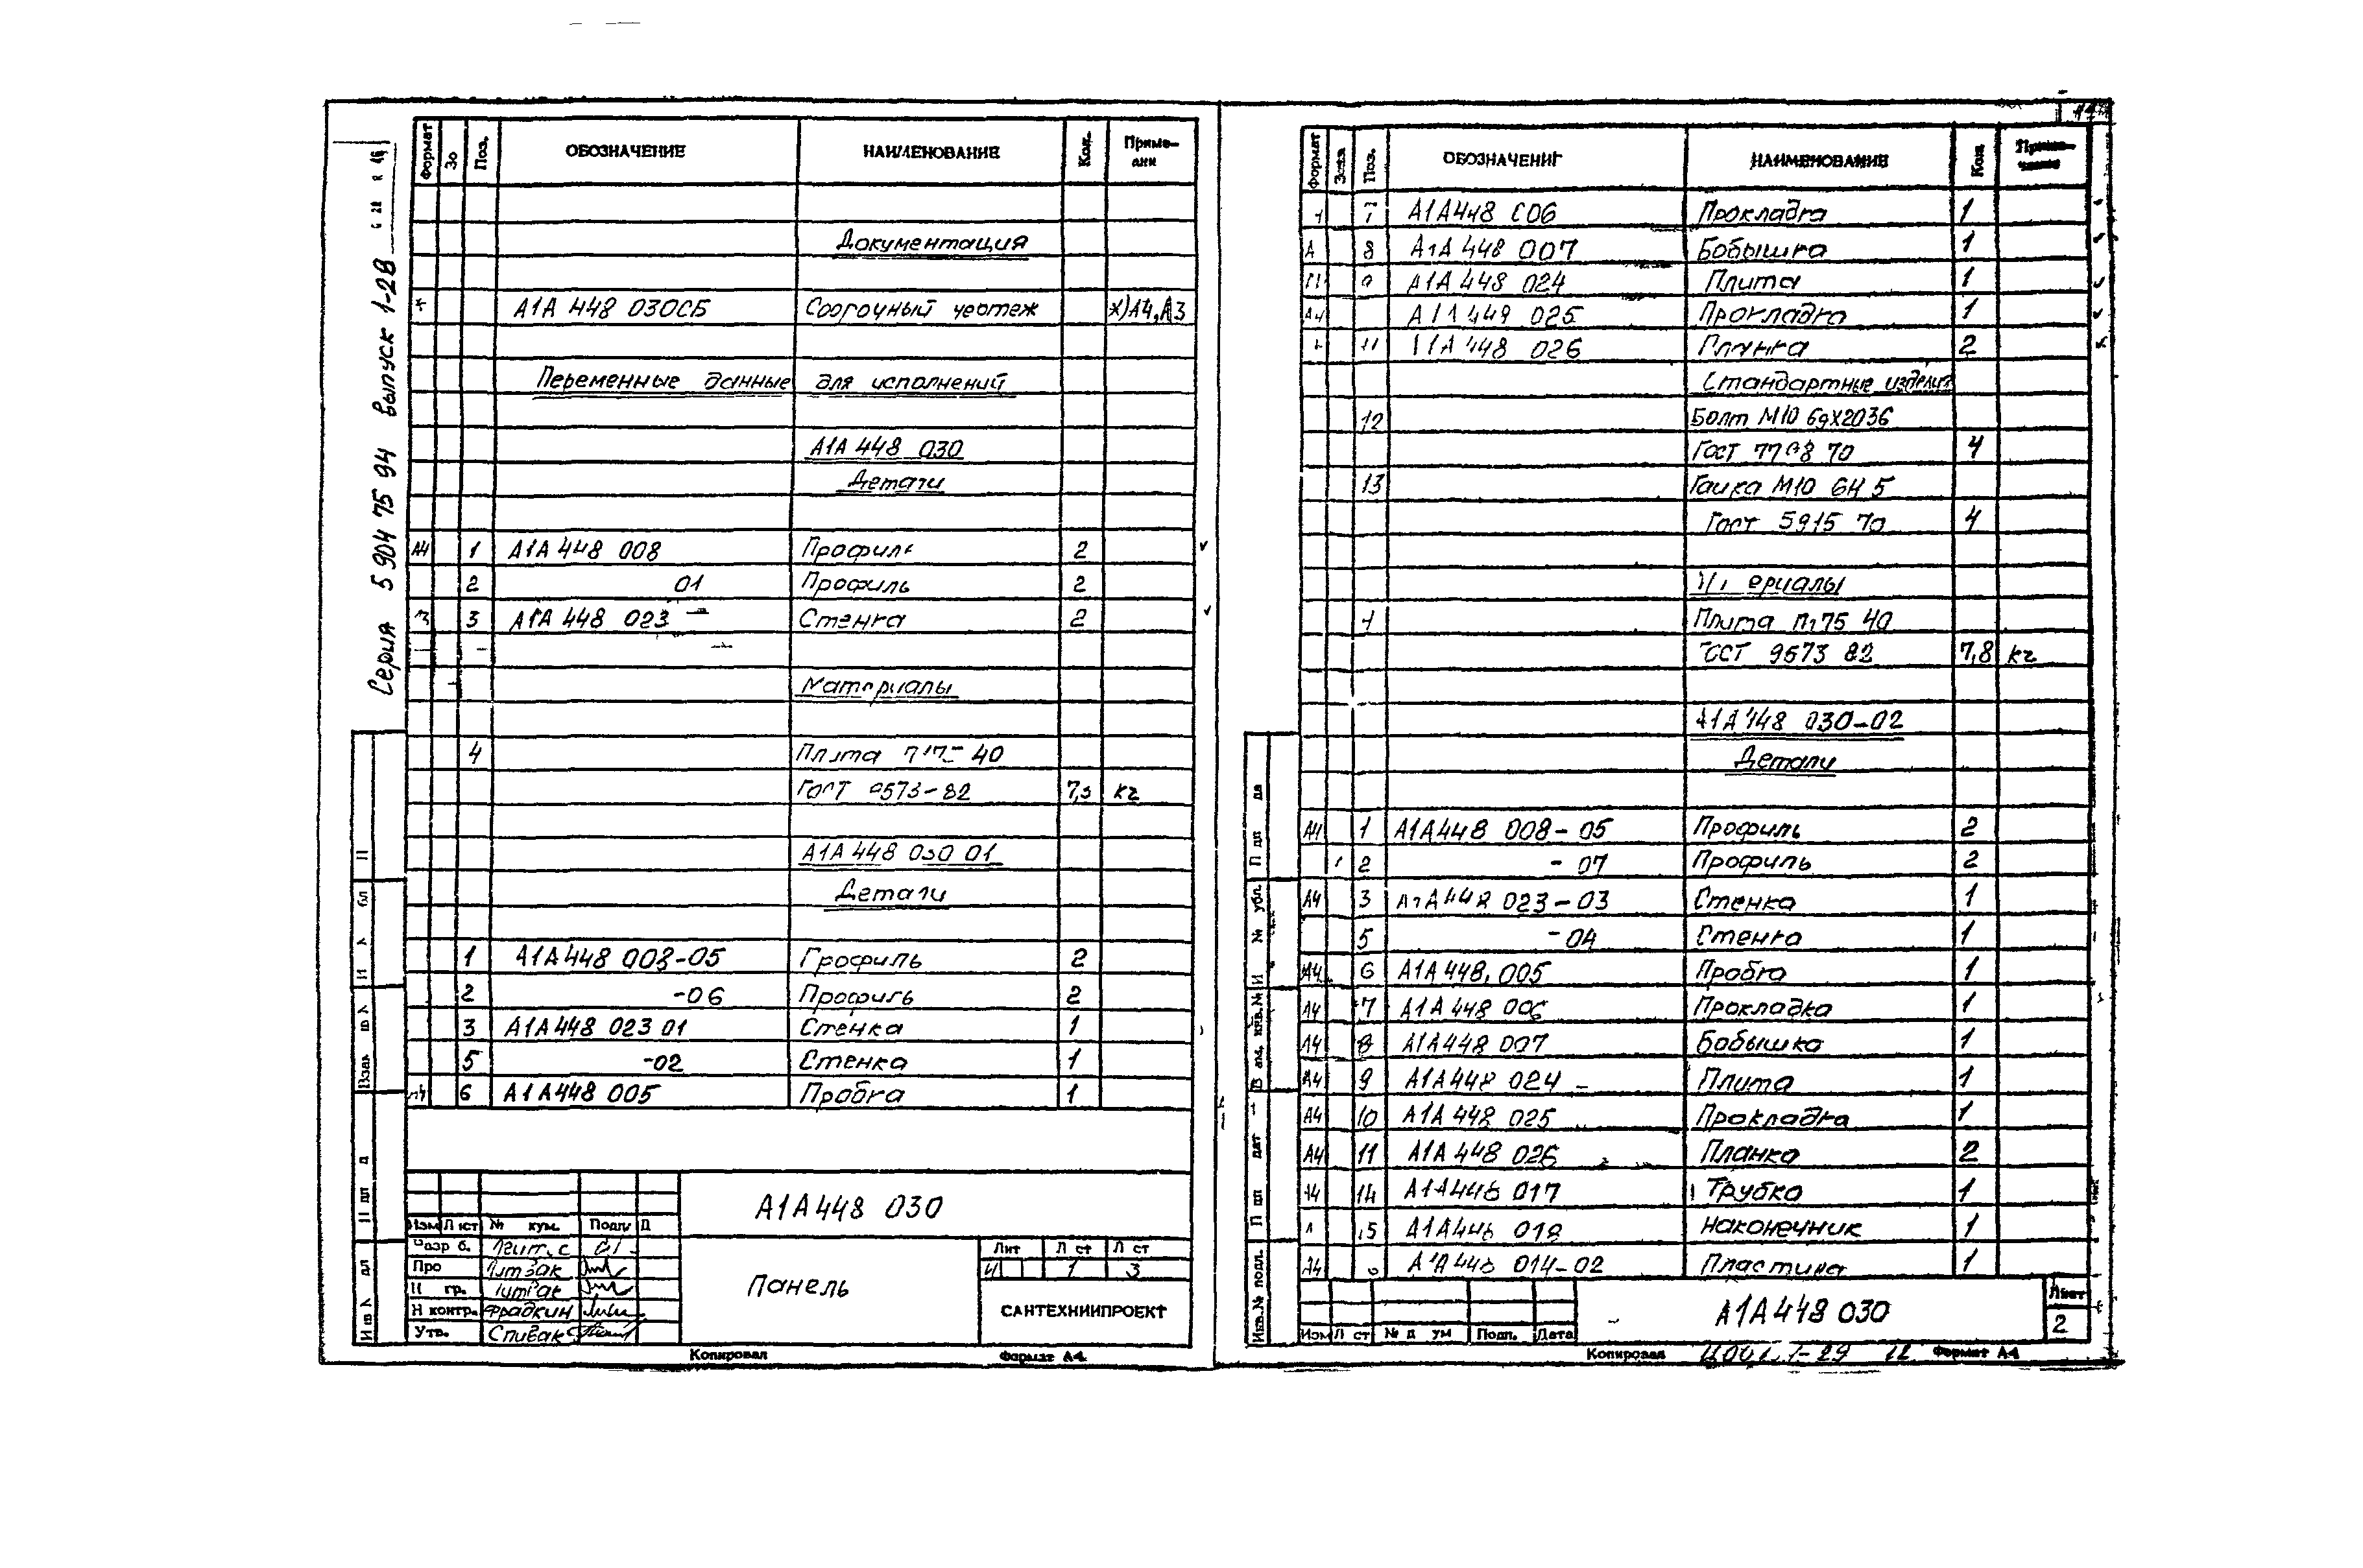 Серия 5 904 75 94 выпуск 1-28
Формат Зо Поз. ОБОЗНАЧЕНИЕ НАИМЕНОВАНИЕ Кол.
Документация
А1А 448 030СБ чертеж х)А4,А3
Переменные данные для исполнений
А1А 448 030
Детали
А4 1 А1А 448 008 Профиль 2
2 01 Профиль 2
3 А1А 448 023 Стенка 2
Материалы
4 Плита 40
ГОСТ 9573-82 кг
А1А 448 030 01
Детали
1 А1А 448 008-05 Профиль 2
2 -06 Профиль 2
3 А1А 448 023 01 Стенка 1
5 -02 Стенка 1
6 А1А448 005 Пробка 1
А1А448 030
Изм Лист № кум. Подп Д
Разр б.
Про
Н гр.
Н контр. Фрадкин
Утв. Спивак
Панель
Лит Л ст Л ст
И 1 3
САНТЕХНИИПРОЕКТ
Копировал Формат А4
Формат Зона Поз. ОБОЗНАЧЕНИЕ НАИМЕНОВАНИЕ Кол
7 А1А448 006 Прокладка 1
8 А1А 448 007 Бобышка 1
9 А1А 448 024 Плита 1
А4 А1А 448 025 Прокладка 1
11 А1А 448 026 Планка 2
Стандартные изделия
12 Болт М10 6gХ2036
Гост 7798 70 4
13 Гайка М10 6Н 5
Гост 5915 70 4
Материалы
4 Плита П175 40
ГОСТ 9573 82 7,8 кг
А1А 448 030-02
Детали
А4 1 А1А448 008-05 Профиль 2
2 -07 Профиль 2
А4 3 А1А 448 023-03 Стенка 1
5 -04 Стенка 1
А4 6 А1А 448.005 Пробка 1
А4 7 А1А 448 006 Прокладка 1
А4 8 А1А448 007 Бобышка 1
А4 9 А1А448 024 Плита 1
А4 10 А1А 448 025 Прокладка 1
А4 11 А1А 448 026 Планка 2
А4 14 А1А448 017 Трубка 1
15 Наконечник 1
А4 А1А 448 014-02 Пластина 1
А1А448 030
Лист
2
Изм Л ст № д ум Подп. Дата
Копировал Формат А4